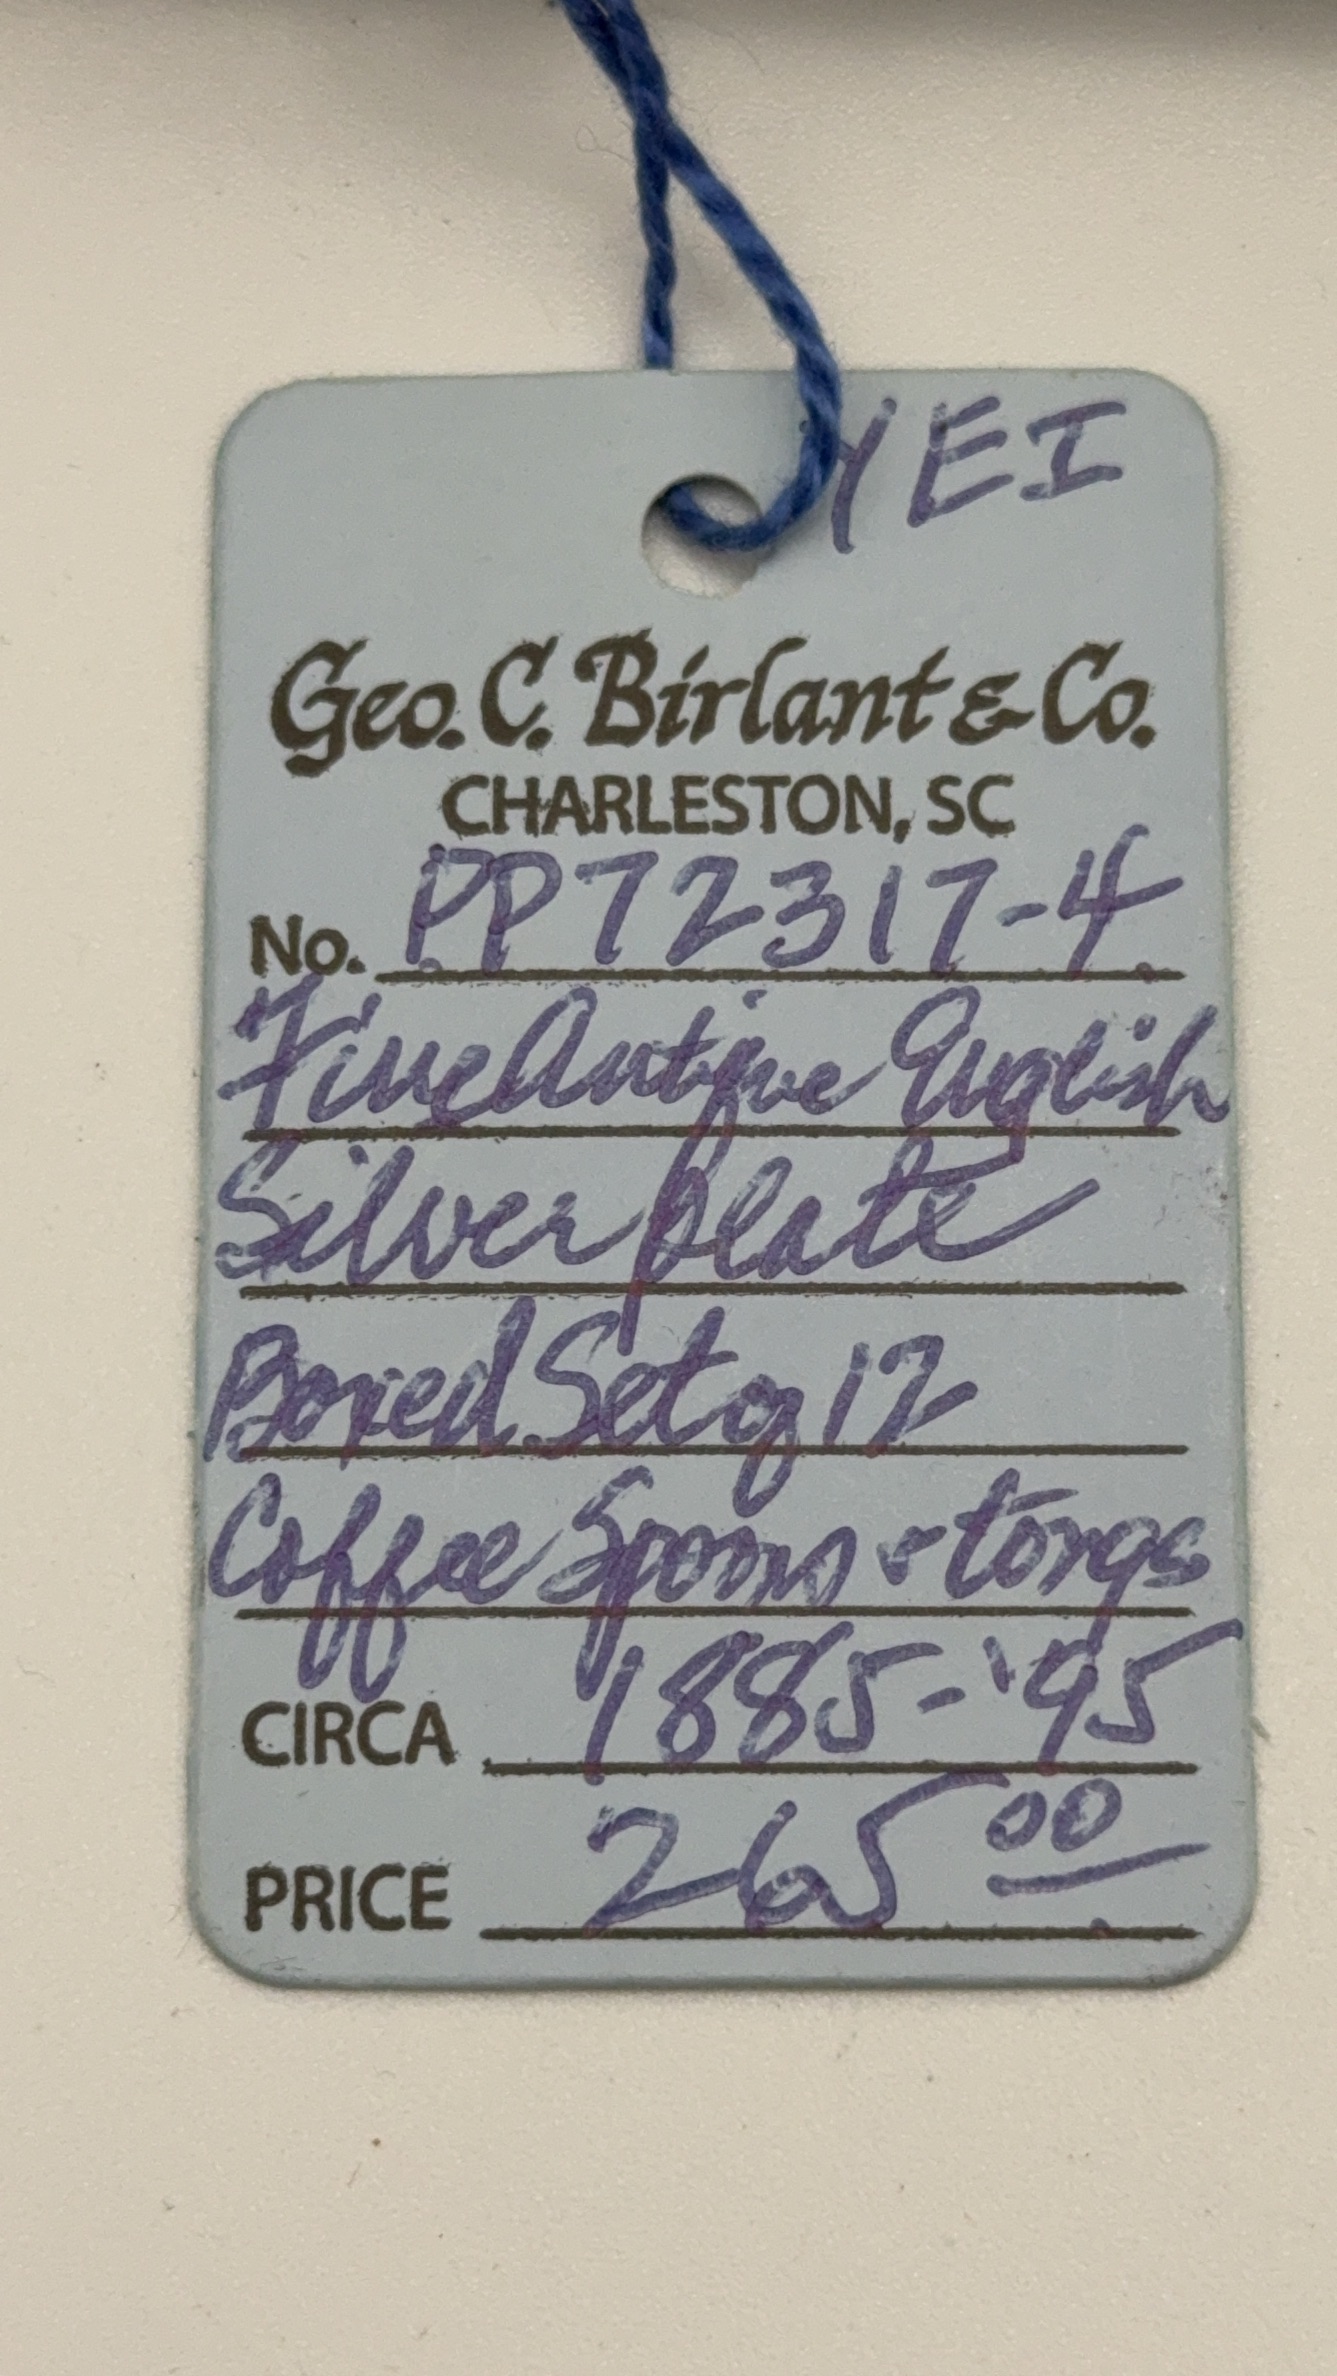 YEI
Geo. C. Birlant & Co.
CHARLESTON, SC
No. PP72317-4
Fine Antique English
Silver plate
Boxed Set of 12
Coffee Spoons & tongs
CIRCA 1885-'95
PRICE 265 00